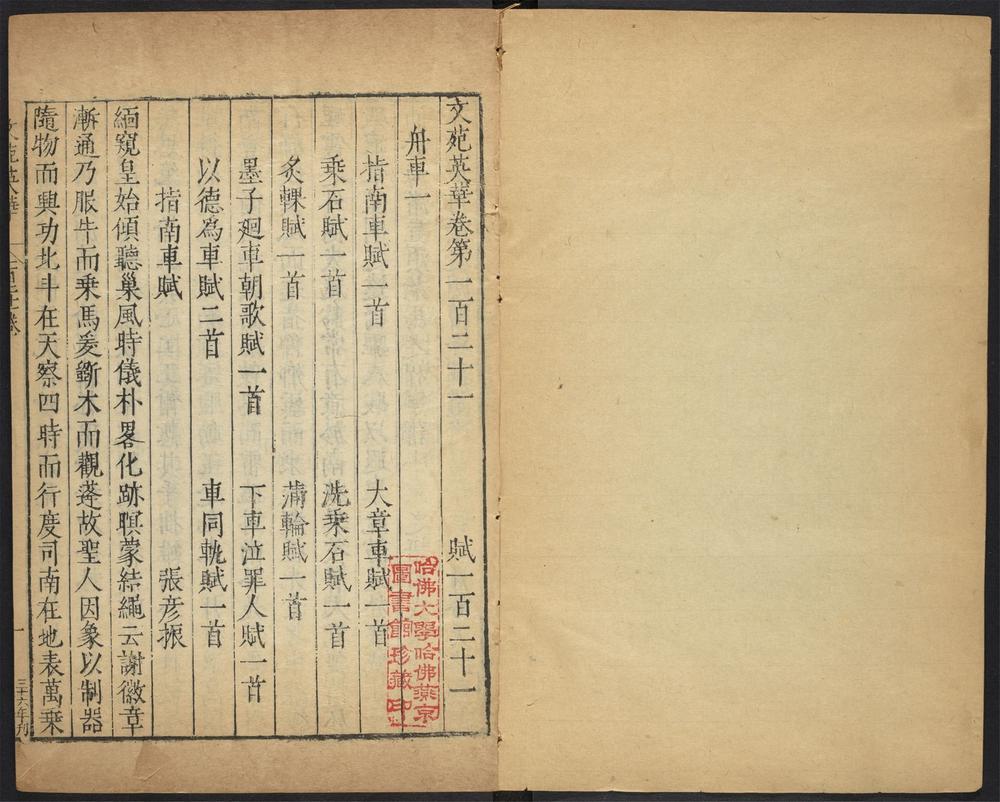 文苑英華卷第一百二十一 賦一百二十一
舟車一
指南車賦一首 大章車賦一首
乘石賦一首 洗乘石賦一首
炙輠賦一首 蒲輪賦一首
墨子廻車朝歌賦一首 下車泣罪人賦一首
以德為車賦二首 車同軌賦一首
指南車賦 張彥振
緬窺皇始傾聽巢風時儀朴畧化跡瞑蒙結繩云謝徽章
漸通乃服牛而乘馬爰斵木而觀蓬故聖人因象以制器
隨物而興功北斗在天察四時而行度司南在地表萬乘
文苑英華
一
三十六年刋
哈佛大學哈佛燕京
圖書館珍藏印